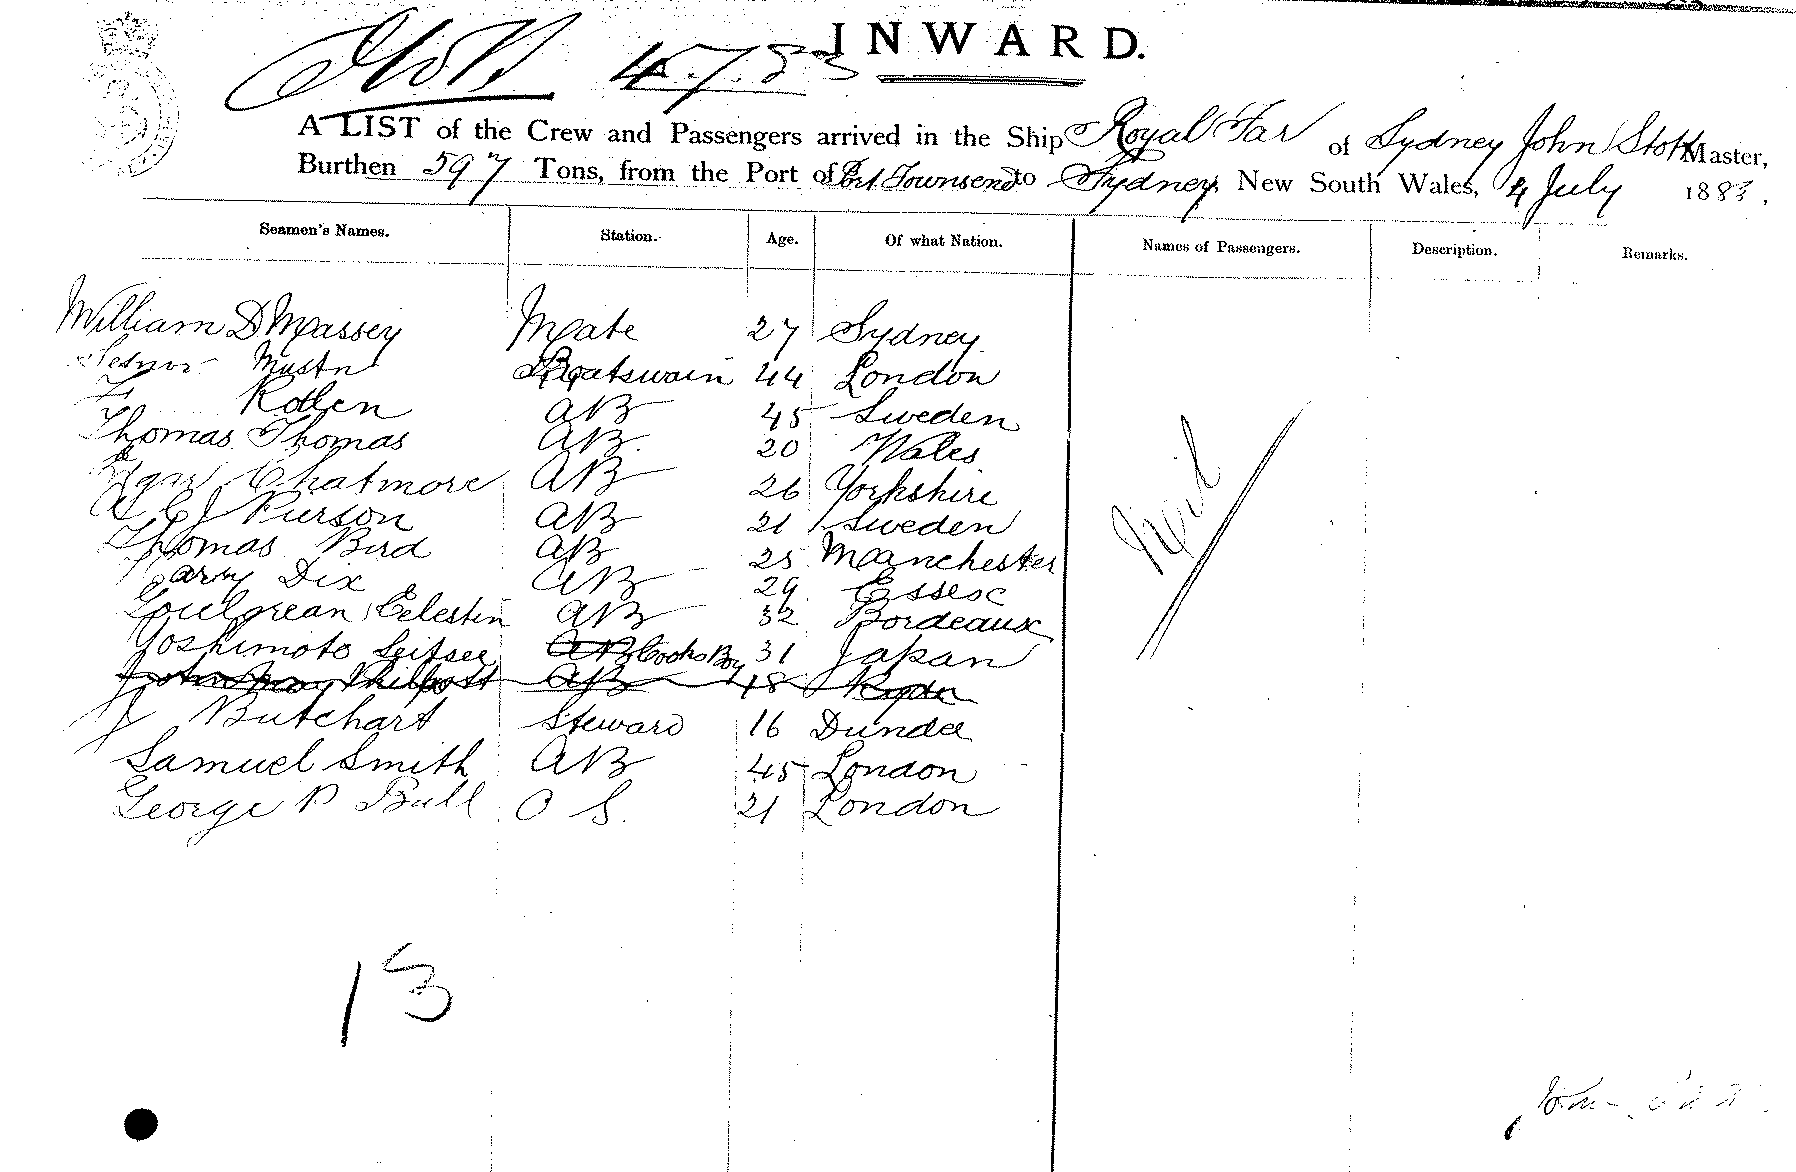 4.7.83
INWARD.
A LIST of the Crew and Passengers arrived in the Ship Royal Tar of Sydney John Stott Master,
Burthen 597 Tons, from the Port of Port Townsend to Sydney, New South Wales, 4 July 1883.
Seamen's Names. Station. Age. Of what Nation. Names of Passengers. Description. Remarks.
William D Massey Mate 27 Sydney
Boatswain 44 London
AB 45 Sweden
Thomas Thomas AB 20 Wales
Chatmore AB 26 Yorkshire
Pierson AB 21 Sweden
Thomas Bird AB 25 Manchester
Harry Dix AB 29 Essex
Celestin AB 32 Bordeaux
Yoshimoto Seitsee AB Cooks Boy 31 Japan
Philpott AB 18 Ryde
J Butchart Steward 16 Dundee
Samuel Smith AB 45 London
George P Bull O S. 21 London
Neil
13
John